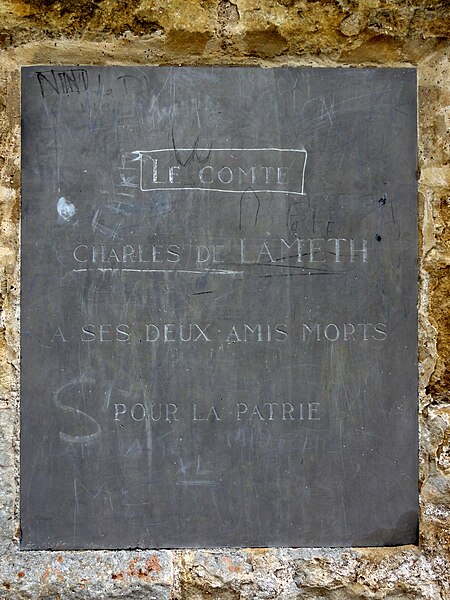 LE COMTE
CHARLES DE LAMETH
A SES DEUX AMIS MORTS
POUR LA PATRIE